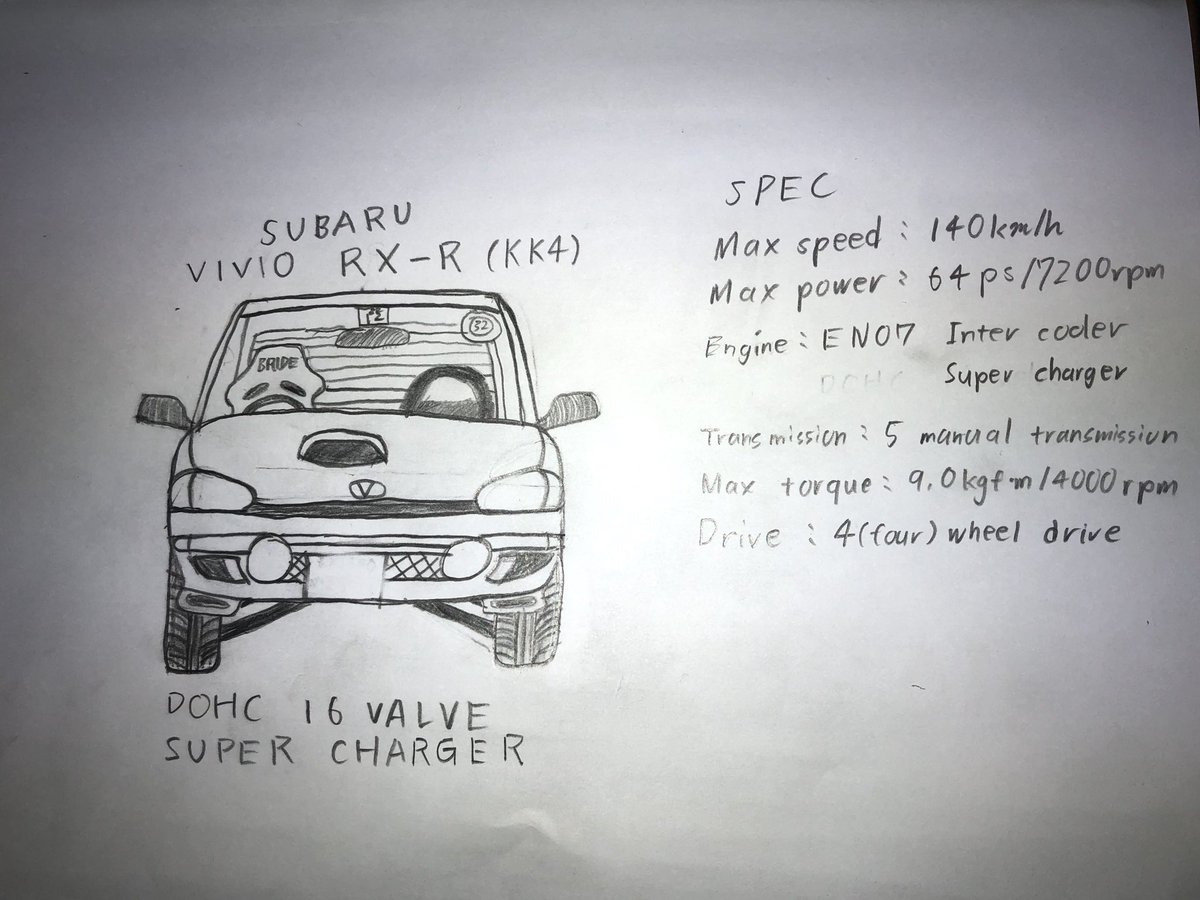 SUBARU
VIVIO RX-R (KK4)
BRIDE
V
DOHC 16 VALVE
SUPER CHARGER
SPEC
Max speed : 140km/h
Max power : 64ps/7200rpm
Engine : EN07 Inter cooler
DOHC Super charger
Transmission : 5 manual transmission
Max torque : 9.0kgf·m/4000rpm
Drive : 4(four) wheel drive